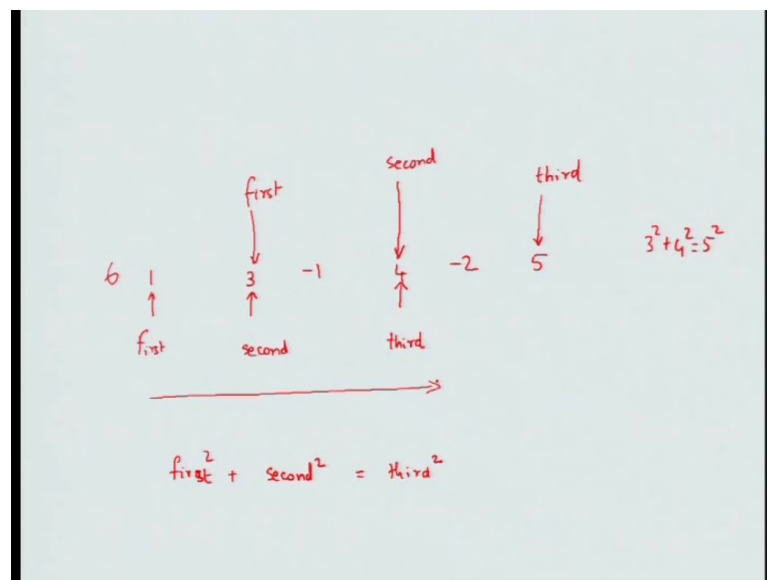 first second third
6 1 3 -1 4 -2 5 3²+4²=5²
first second third
first² + second² = third²